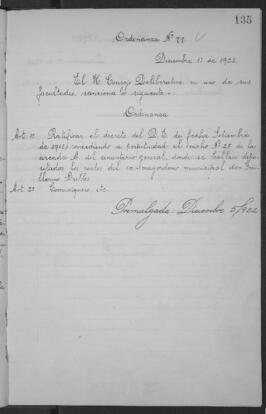 135
Ordenanza Nº 77
Diciembre 1º de 1922.
El H. Consejo Deliberativo, en uso de sus
facultades, sanciona la siguiente.-
Ordenanza
Art. 1º Ratificar el decreto del D. E. de fecha Setiembre
de concediendo a perpetuidad el nicho Nº 25 de la
arcada A. del cementerio general, donde se hallan depo-
sitados los restos del ex-mayordomo municipal don Gui-
llermo
Art. 2º Comuníquese, etc.
Promulgada: Diciembre 5/922